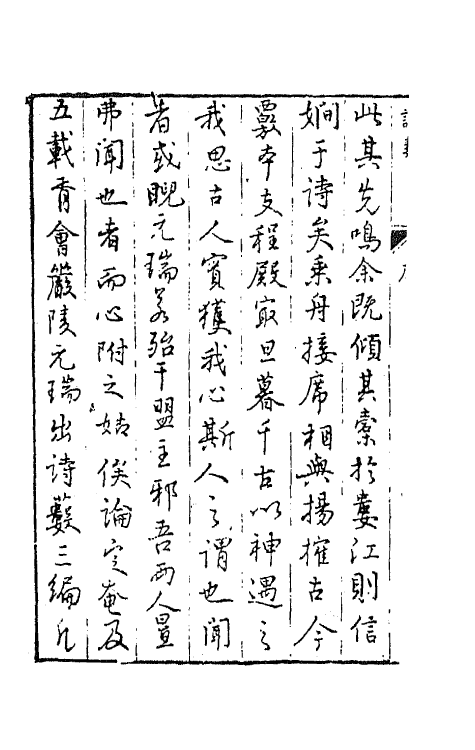 此其先鳴余既傾其橐於婁江則信
嫺于詩矣乘舟接席相與揚搉古今
覈本支程殿最旦暮千古以神遇之
我思古人實獲我心斯人之謂也聞
者或睨元瑞若殆干盟主邪吾兩人置
弗聞也者而心附之姑俟論定奄及
五載胥會嚴陵元瑞出詩藪三編凡